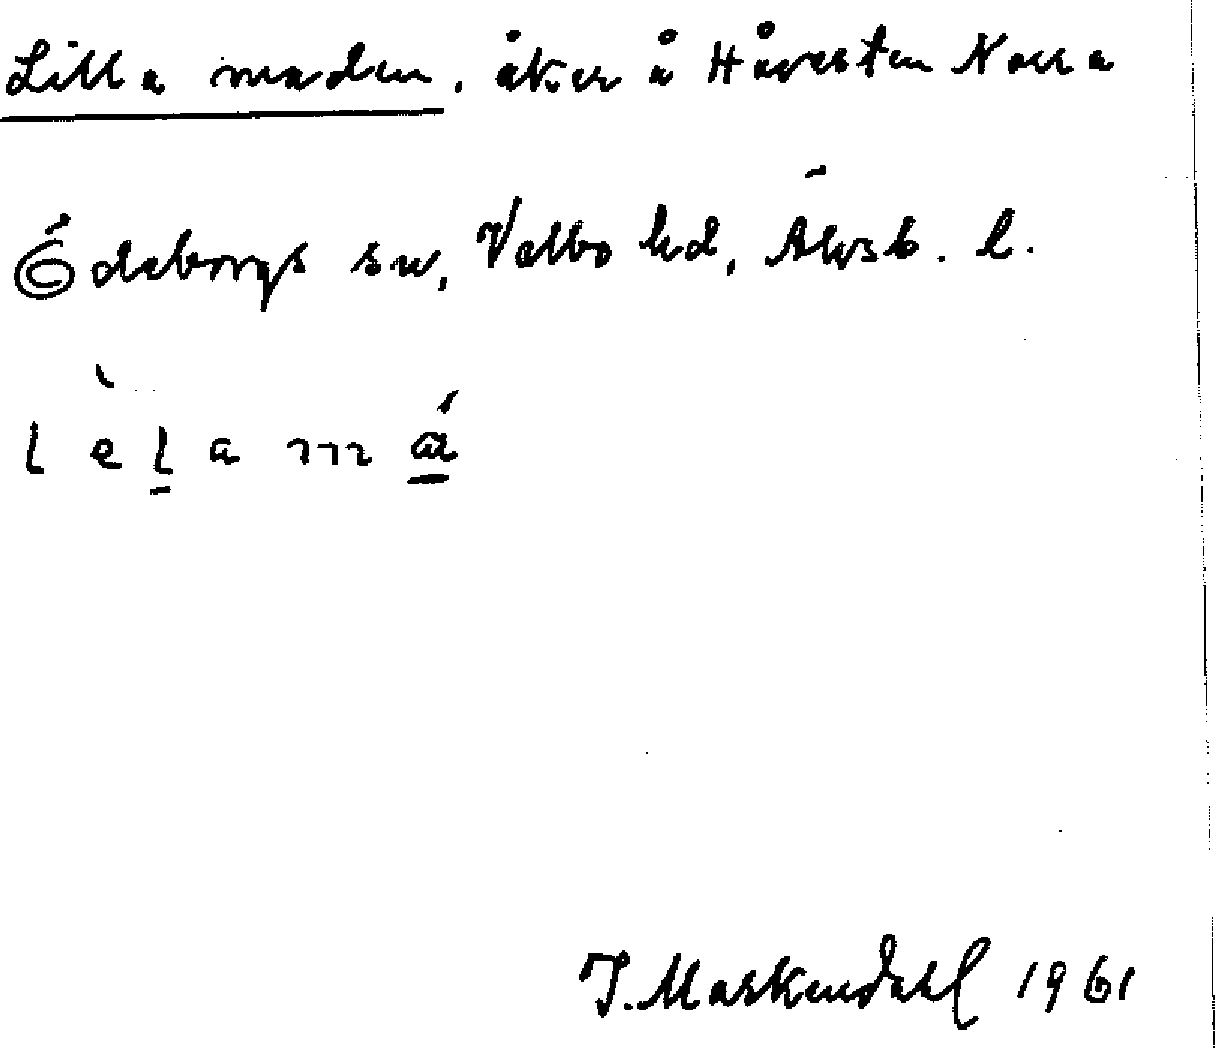 Lilla maden, åker å Håvesten Norra
Ödeborgs sn, Valbo hd, Älvsb. l.
lèḻa mɑ̱́
J. Maskendahl 1961